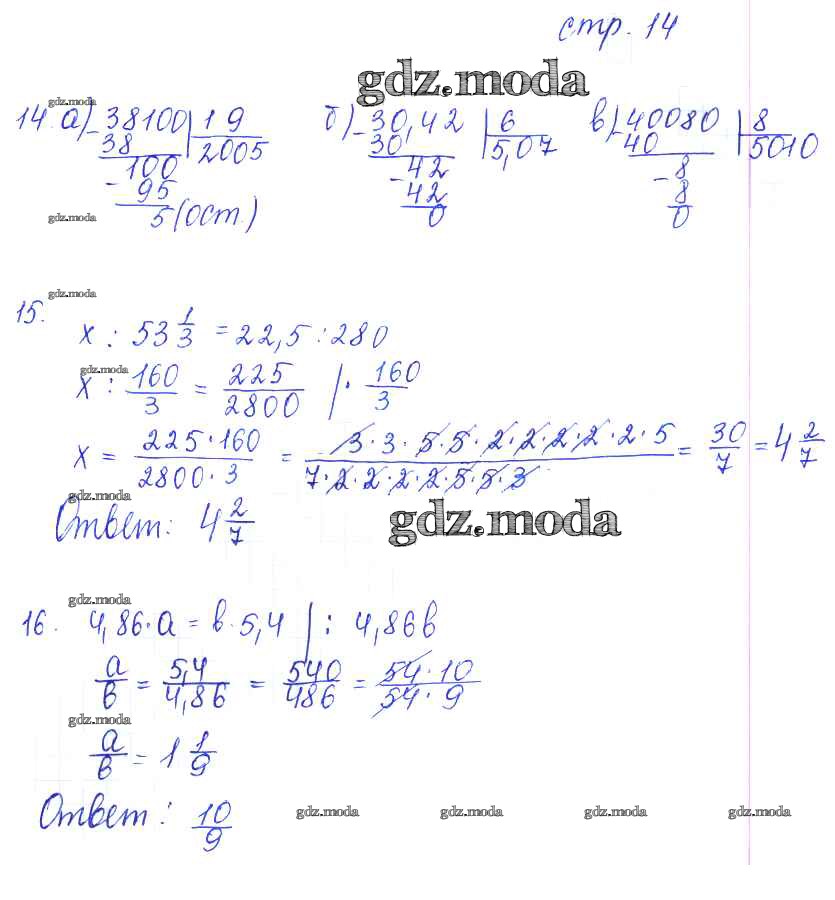 стр. 14
gdz.moda
gdz.moda
14. а) 38100 | 19   б) 30,42 | 6   в) 40080 | 8
38 2005   30 5,07   40 5010
100   42   8
- 95   42   8
5 (ост.)   0   0
gdz.moda
gdz.moda
15.
x : 53 1/3 = 22,5 : 280
gdz.moda
x : 160/3 = 225/2800 | · 160/3
x = 225·160/2800·3 = 3·3·5·5·2·2·2·2·2·5/7·2·2·2·2·5·5·3 = 30/7 = 4 2/7
gdz.moda
Ответ: 4 2/7
gdz.moda
gdz.moda
16. 4,86·a = b·5,4 | : 4,86b
a/b = 5,4/4,86 = 540/486 = 54·10/54·9
gdz.moda
a/b = 1 1/9
Ответ: 10/9
gdz.moda gdz.moda gdz.moda gdz.moda